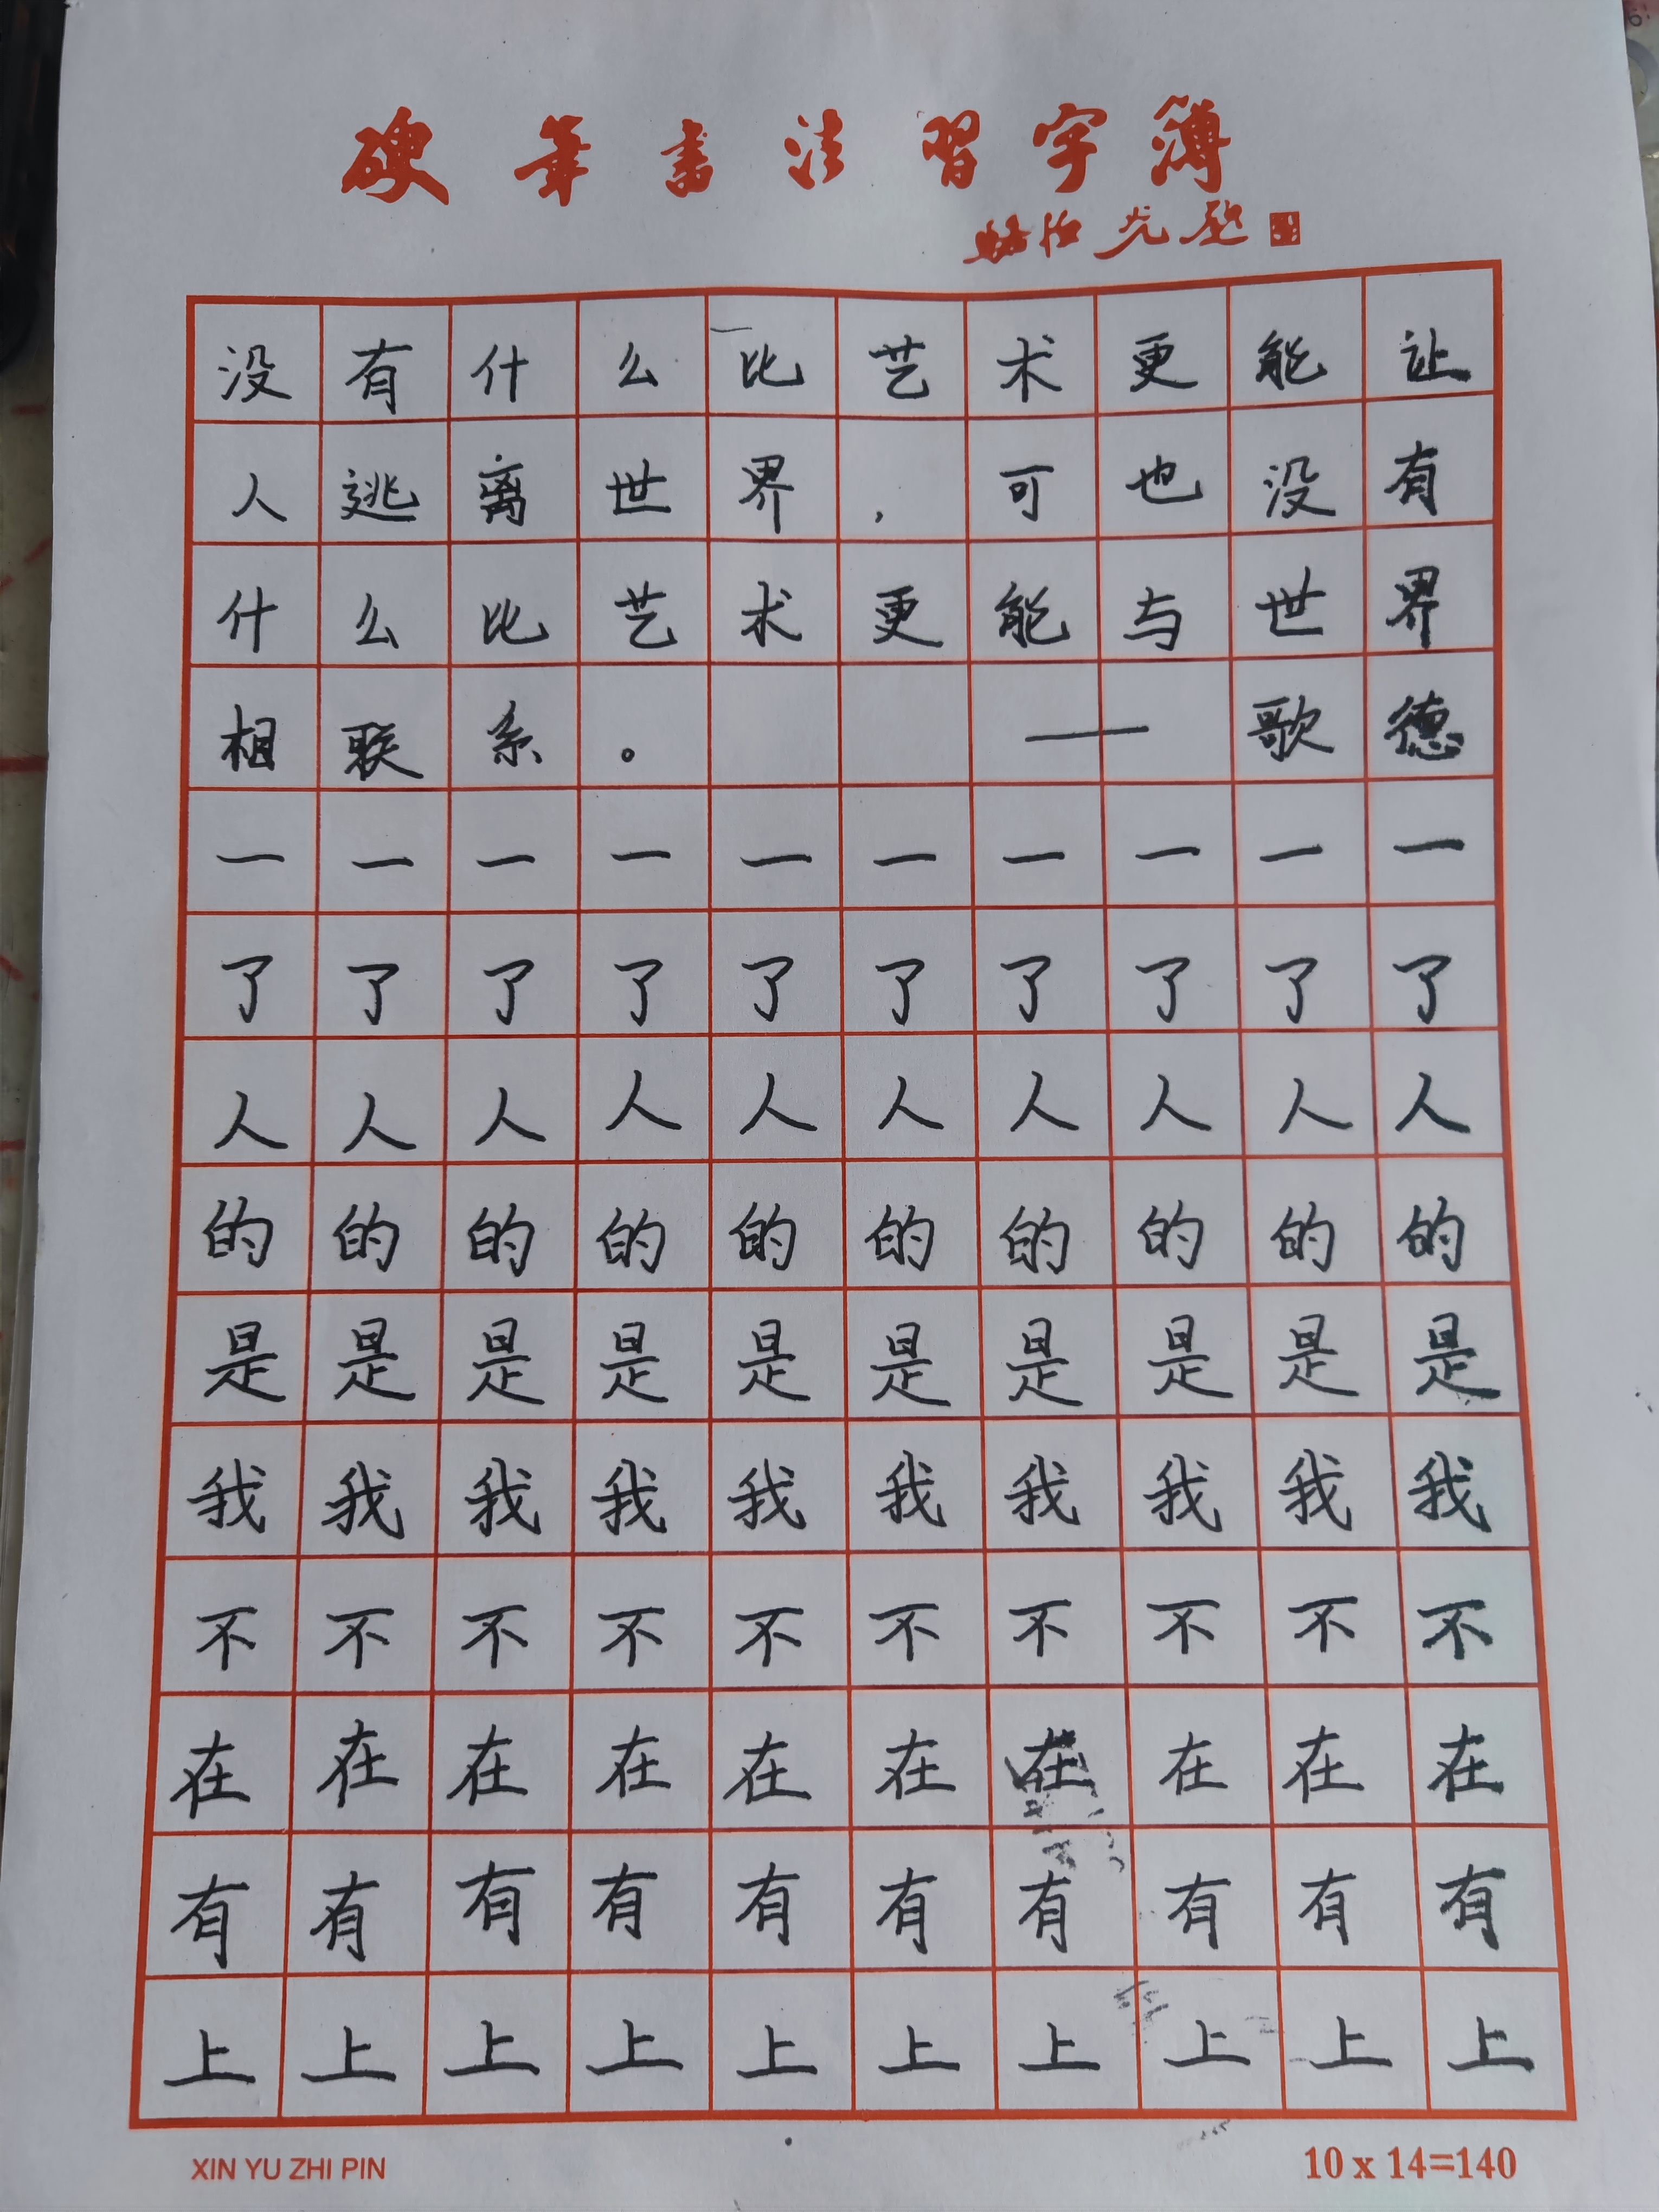 硬筆書法習字簿
没有什么比艺术更能让
人逃离世界，可也没有
什么比艺术更能与世界
相联系。——歌德
一一一一一一一一一一
了了了了了了了了了了
人人人人人人人人人人
的的的的的的的的的的
是是是是是是是是是是
我我我我我我我我我我
不不不不不不不不不不
在在在在在在在在在在
有有有有有有有有有有
上上上上上上上上上上
XIN YU ZHI PIN
10 x 14=140